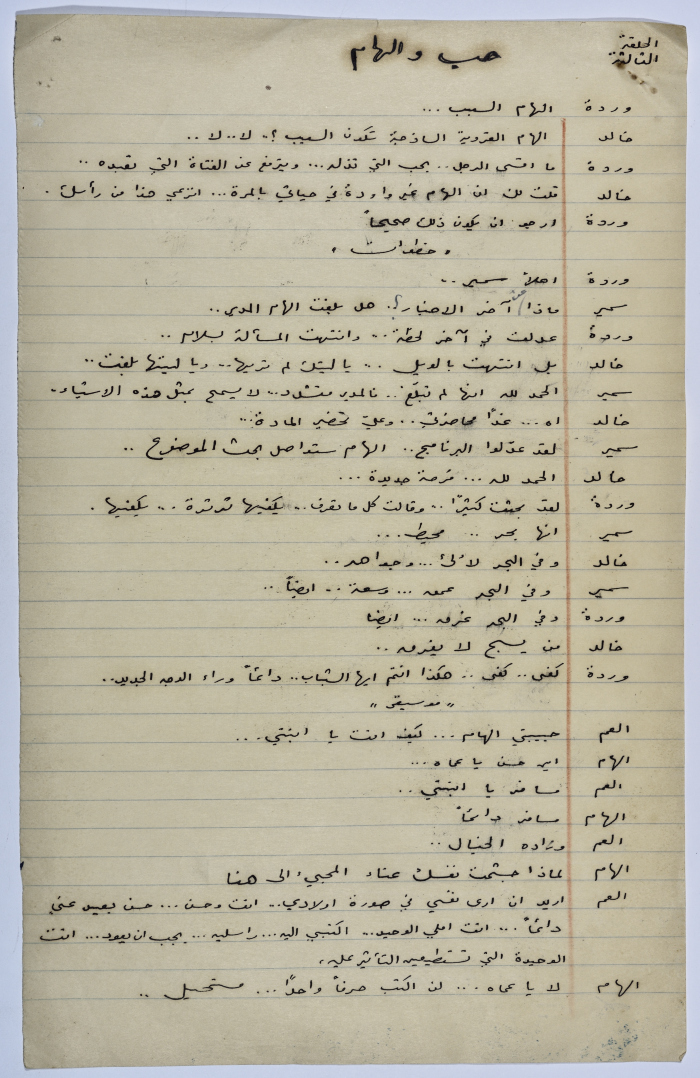 الحلقة
الثالثة
حب والهام
وردة الهام السبب ...
خالد الهام القروية الساذجة تكون السبب ؟.. لا .. لا ..
وردة ما اقسى الرجل .. يحب التي تذله ... ويترفع عن الفتاة التي تعبده ..
خالد قلت لك ان الهام غير واردة في حياتي بالمرة ... انزعي هذا من رأسك .
وردة ارجو ان يكون ذلك صحيحاً
" خطوات "
وردة اهلاً سمير ..
سمير ماذا عن آخر الاخبار ؟. هل بلغت الهام المدير ..
وردة عدلت في آخر لحظة .. وانتهت المسألة بسلام ..
خالد بل انتهت بالويل ... يا ليتك لم تريها .. ويا ليتها بلغت ..
سمير الحمد لله انها لم تبلّغ .. فالمدير متشدد .. لا يسمح بمثل هذه الاشياء ..
خالد اه ... غداً محاضرتي .. وعلي تحضير المادة ..
سمير لقد عدّلوا البرنامج .. الهام ستواصل بحث الموضوع ..
خالد الحمد لله ... فرصة جديدة ...
وردة لقد بحثت كثيرًا .. وقالت كل ما تعرف .. يكفيها ثرثرة ... يكفيها .
سمير انها بحر .. محيط ...
خالد وفي البحر لآلئ ... وجواهر ..
سمير وفي البحر عمق ... وسعة .. ايضاً ..
وردة وفي البحر غرق ... ايضا
خالد من يسبح لا يغرق ..
وردة كفى .. كفى .. هكذا انتم ايها الشباب .. دائماً وراء الوجه الجديد ..
" موسيقى "
العم حبيبتي الهام ... كيف انت يا ابنتي ...
الهام اين حسن يا عماه ...
العم مسافر يا ابنتي ..
الهام مسافر دائماً
العم وزاده الخيال ..
الهام لماذا جشمت نفسك عناء المجيء الى هنا
العم اريد ان ارى نفسي في صورة اولادي .. انت وحسن ... حسن بعيد عني
دائماً ... انت املي الوحيد .. اكتبي اليه ... راسليه ... يجب ان يعود ... انت
الوحيدة التي تستطيعين التأثير عليه .
الهام لا يا عماه ... لن اكتب حرفاً واحدًا ... مستحيل ..